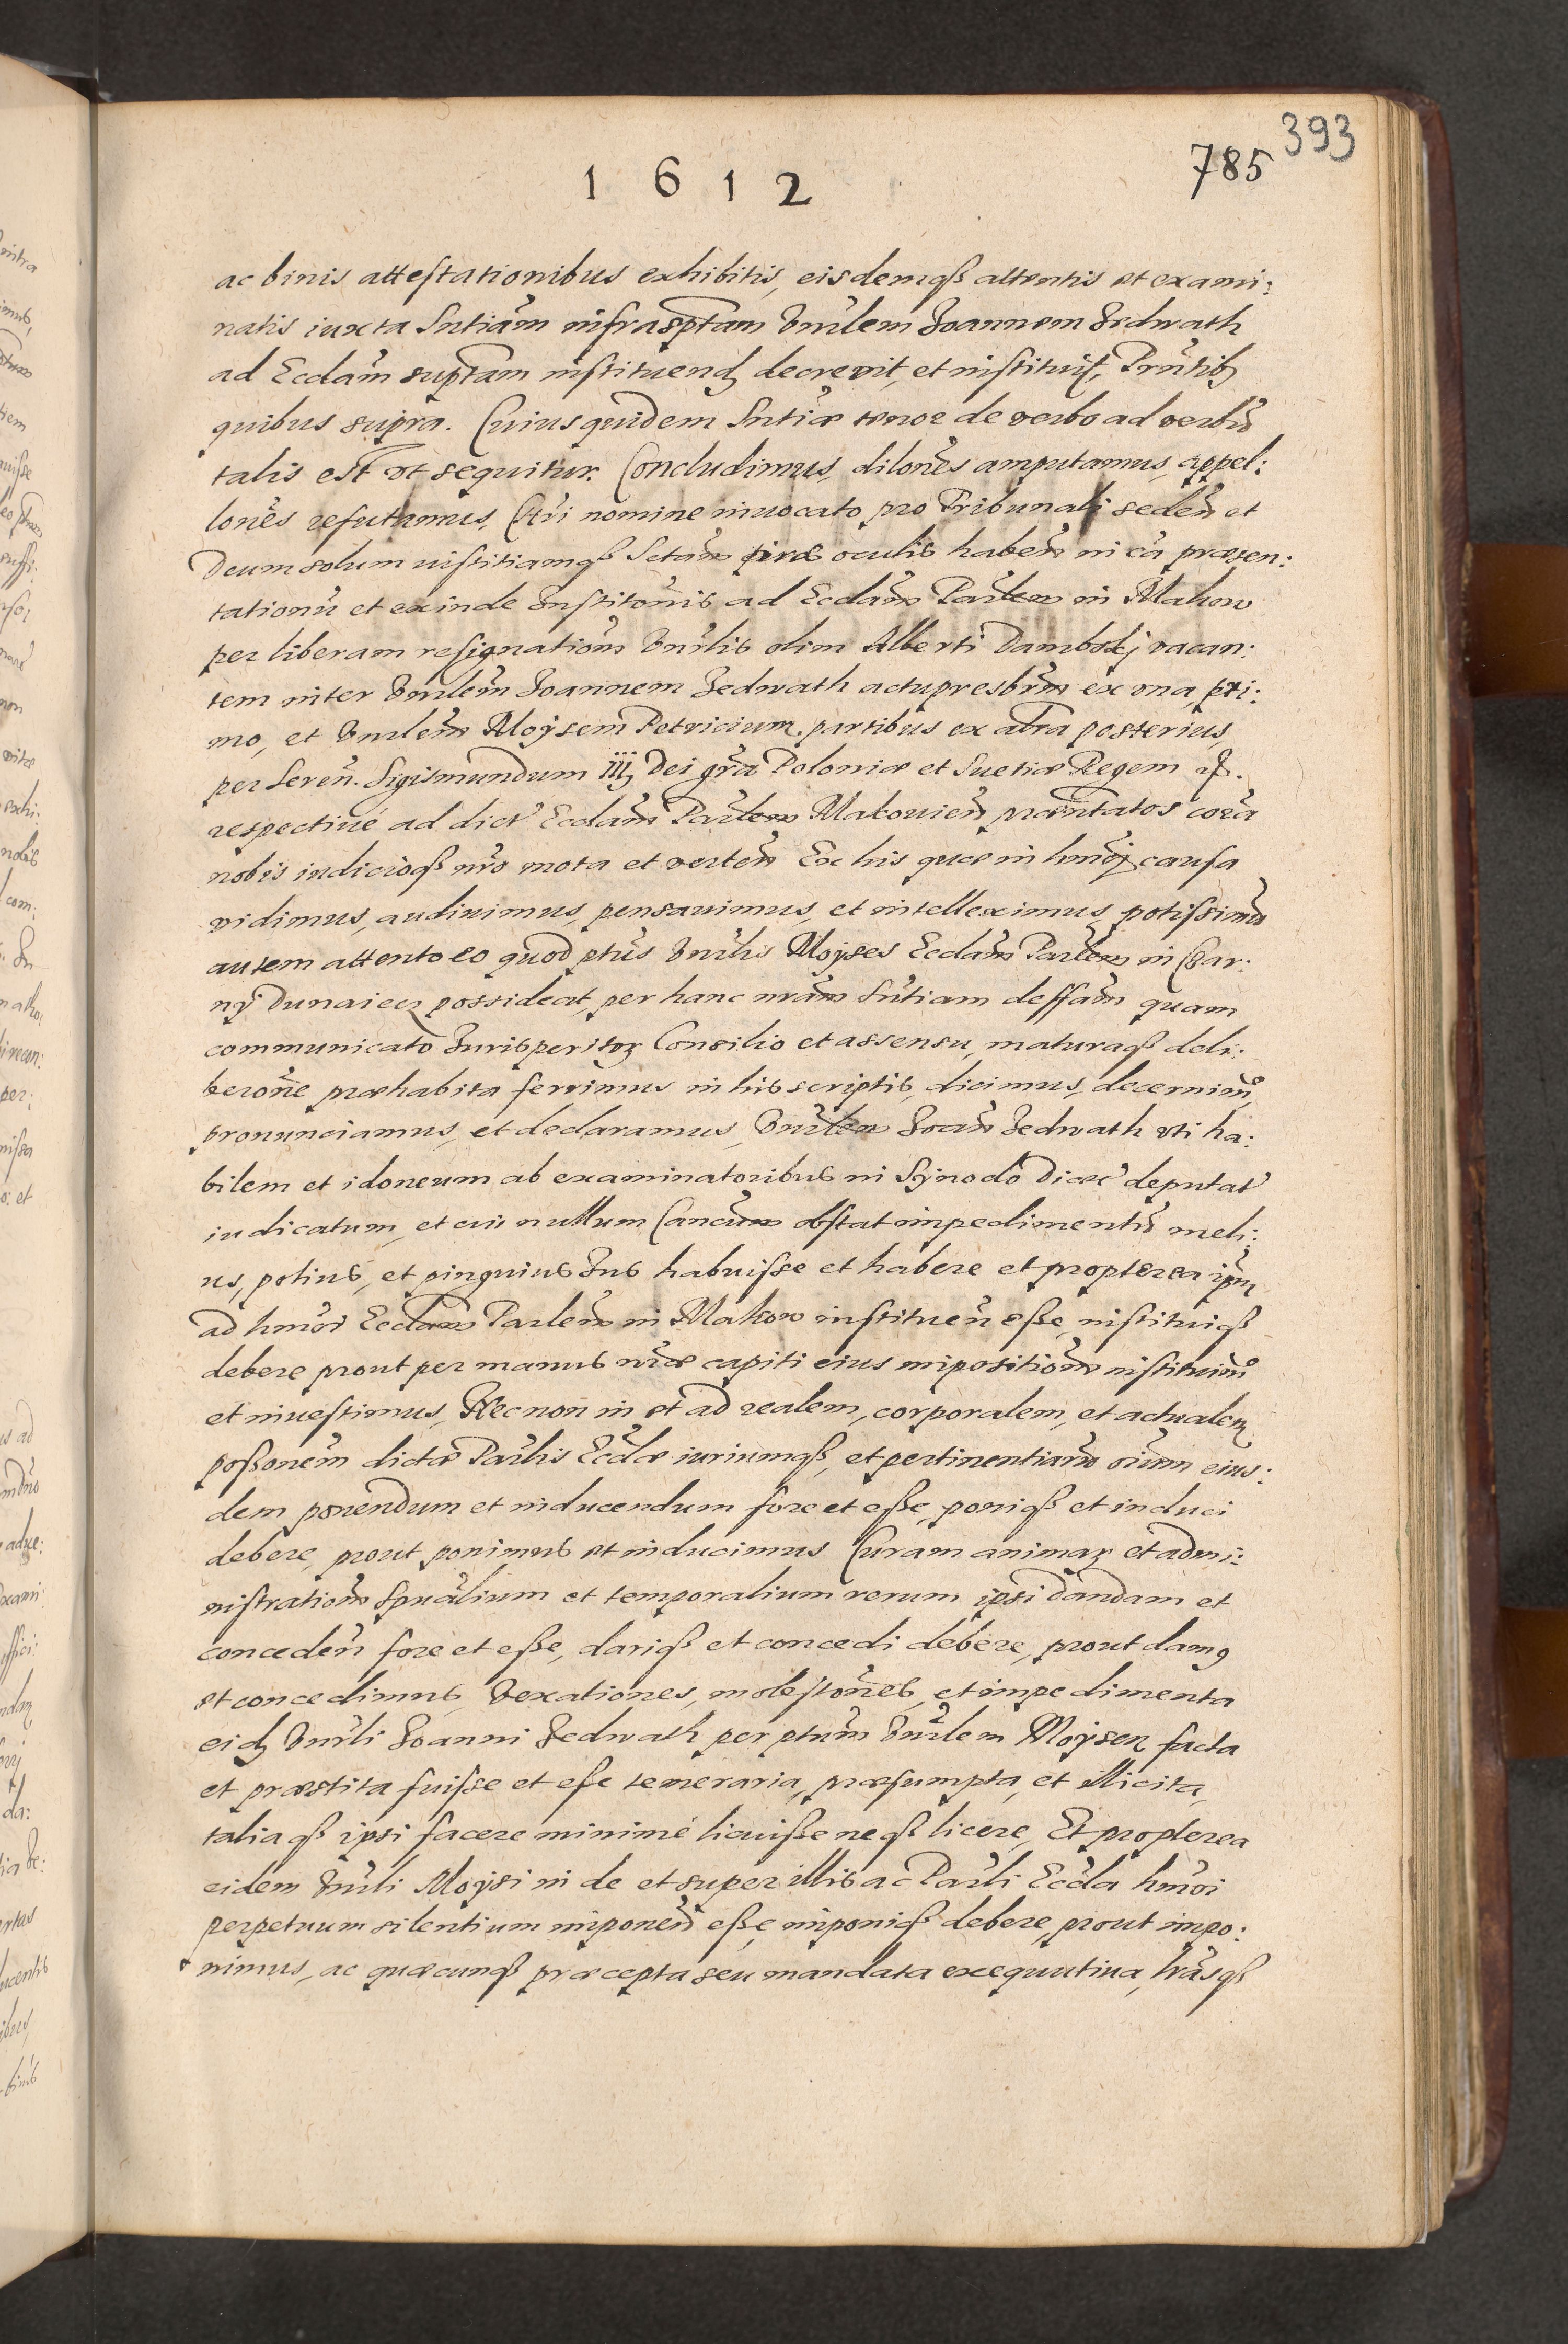 393
785
1612
ac binis attestationibus exhibitis, eisdemqß attentis et exami:
natis iuxta Sntiam infrasptam Vnrlem Joannem Jedwath
ad Eccliam suptam instituend decrevit, et instituit, Prntib
quibus supra. Cuius quidem Sntiæ tenor de verbo ad verbũ
talis est ut sequitur. Concludimus, dilones amputamus, appel:
lones refutamus, Chri nomine inuocato pro Tribunali seden et
Deum solum iustitiamqß Sctam præ oculis haben in cã præsen:
tationũ et exinde Institonis ad Eccliam Parlem in Makow
per liberam resignationẽ Vnrlis olim Alberti Dambskj vacan:
tem inter Vnrlem Joannem Jedwath actu presbrm ex vna, pri:
mo, et Vnrlem Moÿsem Petricium partibus ex altra posterius,
per Seren. Sigismundum iij Dei gra Poloniæ et Suetiæ Regem
respectiué ad dict Eccliam Parlem Makouien præntatos corã
nobis iudicioqß nro mota et verten Ex his quæ in hmõi causa
vidimus, audiuimus, pensauimus, et intelleximus, potissimũ
autem attento eo quod ptus Vnrlis Moÿses Eccliam Parlem in Czar:
nÿ Dunaiecz possideat, per hanc nram Sntiam deffam quam
communicato Jurisperitor Consilio et assensu, maturaqß deli:
berone præhabita ferrimus in his scriptis, dicimus, decernim,
pronunciamus, et declaramus, Vnrlem Joan Jedwath uti ha:
bilem et idoneum ab examinatoribus in Sÿnodo Diæc deputat
iudicatum, et cui nullum Cancum obstat impedimentũ meli:
us, potius, et pinguius Jus habuisse et habere et propterea ipm
ad hmõi Eccliam Parlem in Makow instituen eße, instituiqß
debere prout per manus nræ capiti eius impositionẽ instituim
et inuestimus, Necnon in et ad realem, corporalem, et actualem
poßonem dictæ Parlis Eccliæ iuriumqß, et pertinentiarũ oium eius:
dem ponendum et inducendum fore et eße, poniqß et induci
debere, prout ponimus et inducimus Curam animar et admi:
nistrationẽ spualium et temporalium rerum ipsi dandam et
conceden fore et eße, dariqß et concedi debere, prout dam9
et concedimus, Vexationes, molestones, et impedimenta
eid Vnrli Joanni Jedwath per ptum Vnrlem Moÿsen facta
et præstita fuisse et esse temeraria, præsumpta, et illicita,
taliaqß ipsi facere minimé licuiße neqß licere, Et propterea
eidem Vnrli Moÿsi in de et super illis ac Parli Eccla hmõi
perpetuum silentium imponen eße, imponiqß debere, prout impo:
nimus, ac quæcunqß præcepta seu mandata exequutiua, lrasqß